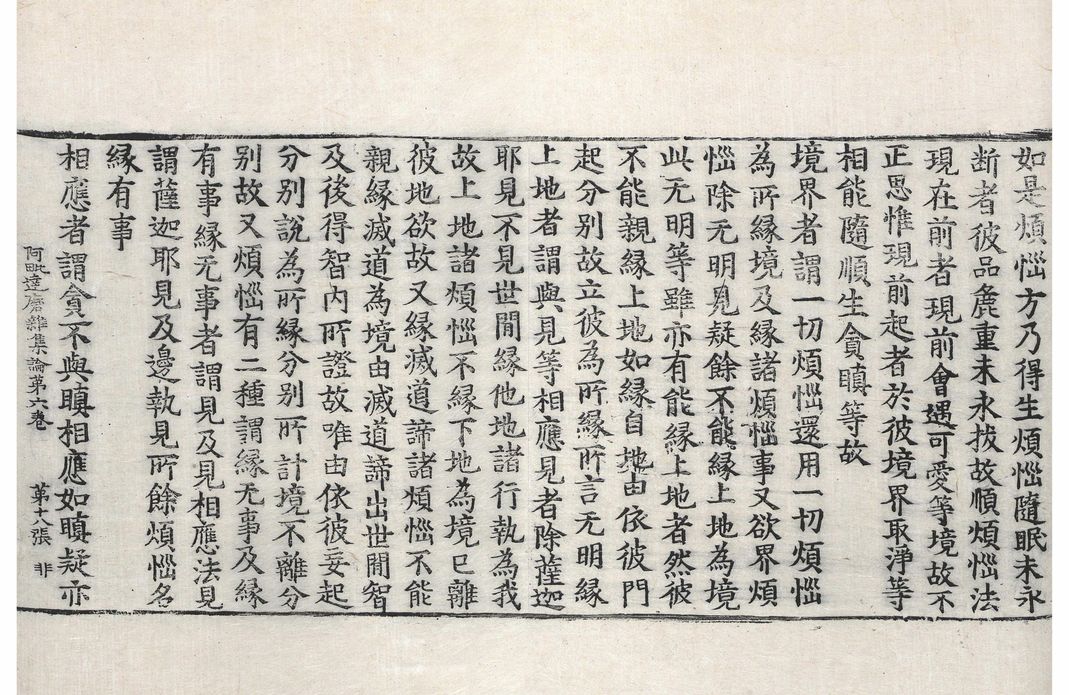 如是煩惱方乃得生煩惱隨眠未永
断者彼品麁重未永拔故順煩惱法
現在前者現前會遇可愛等境故不
正思惟現前起者於彼境界取淨等
相能隨順生貪瞋等故
境界者謂一切煩惱還用一切煩惱
為所緣境及緣諸煩惱事又欲界煩
惱除无明見疑餘不能緣上地為境
此无明等雖亦有能緣上地者然彼
不能親緣上地如緣自地由依彼門
起分別故立彼為所緣所言无明緣
上地者謂與見等相應見者除薩迦
耶見不見世間緣他地諸行執為我
故上地諸煩惱不緣下地為境已離
彼地欲故又緣滅道諦諸煩惱不能
親緣滅道為境由滅道諦出世間智
及後得智內所證故唯由依彼妄起
分別說為所緣分別所計境不離分
別故又煩惱有二種謂緣无事及緣
有事緣无事者謂見及見相應法見
謂薩迦耶見及邊執見所餘煩惱名
緣有事
相應者謂貪不與瞋相應如瞋疑亦
阿毗達磨雜集論第六卷 第十八張 非